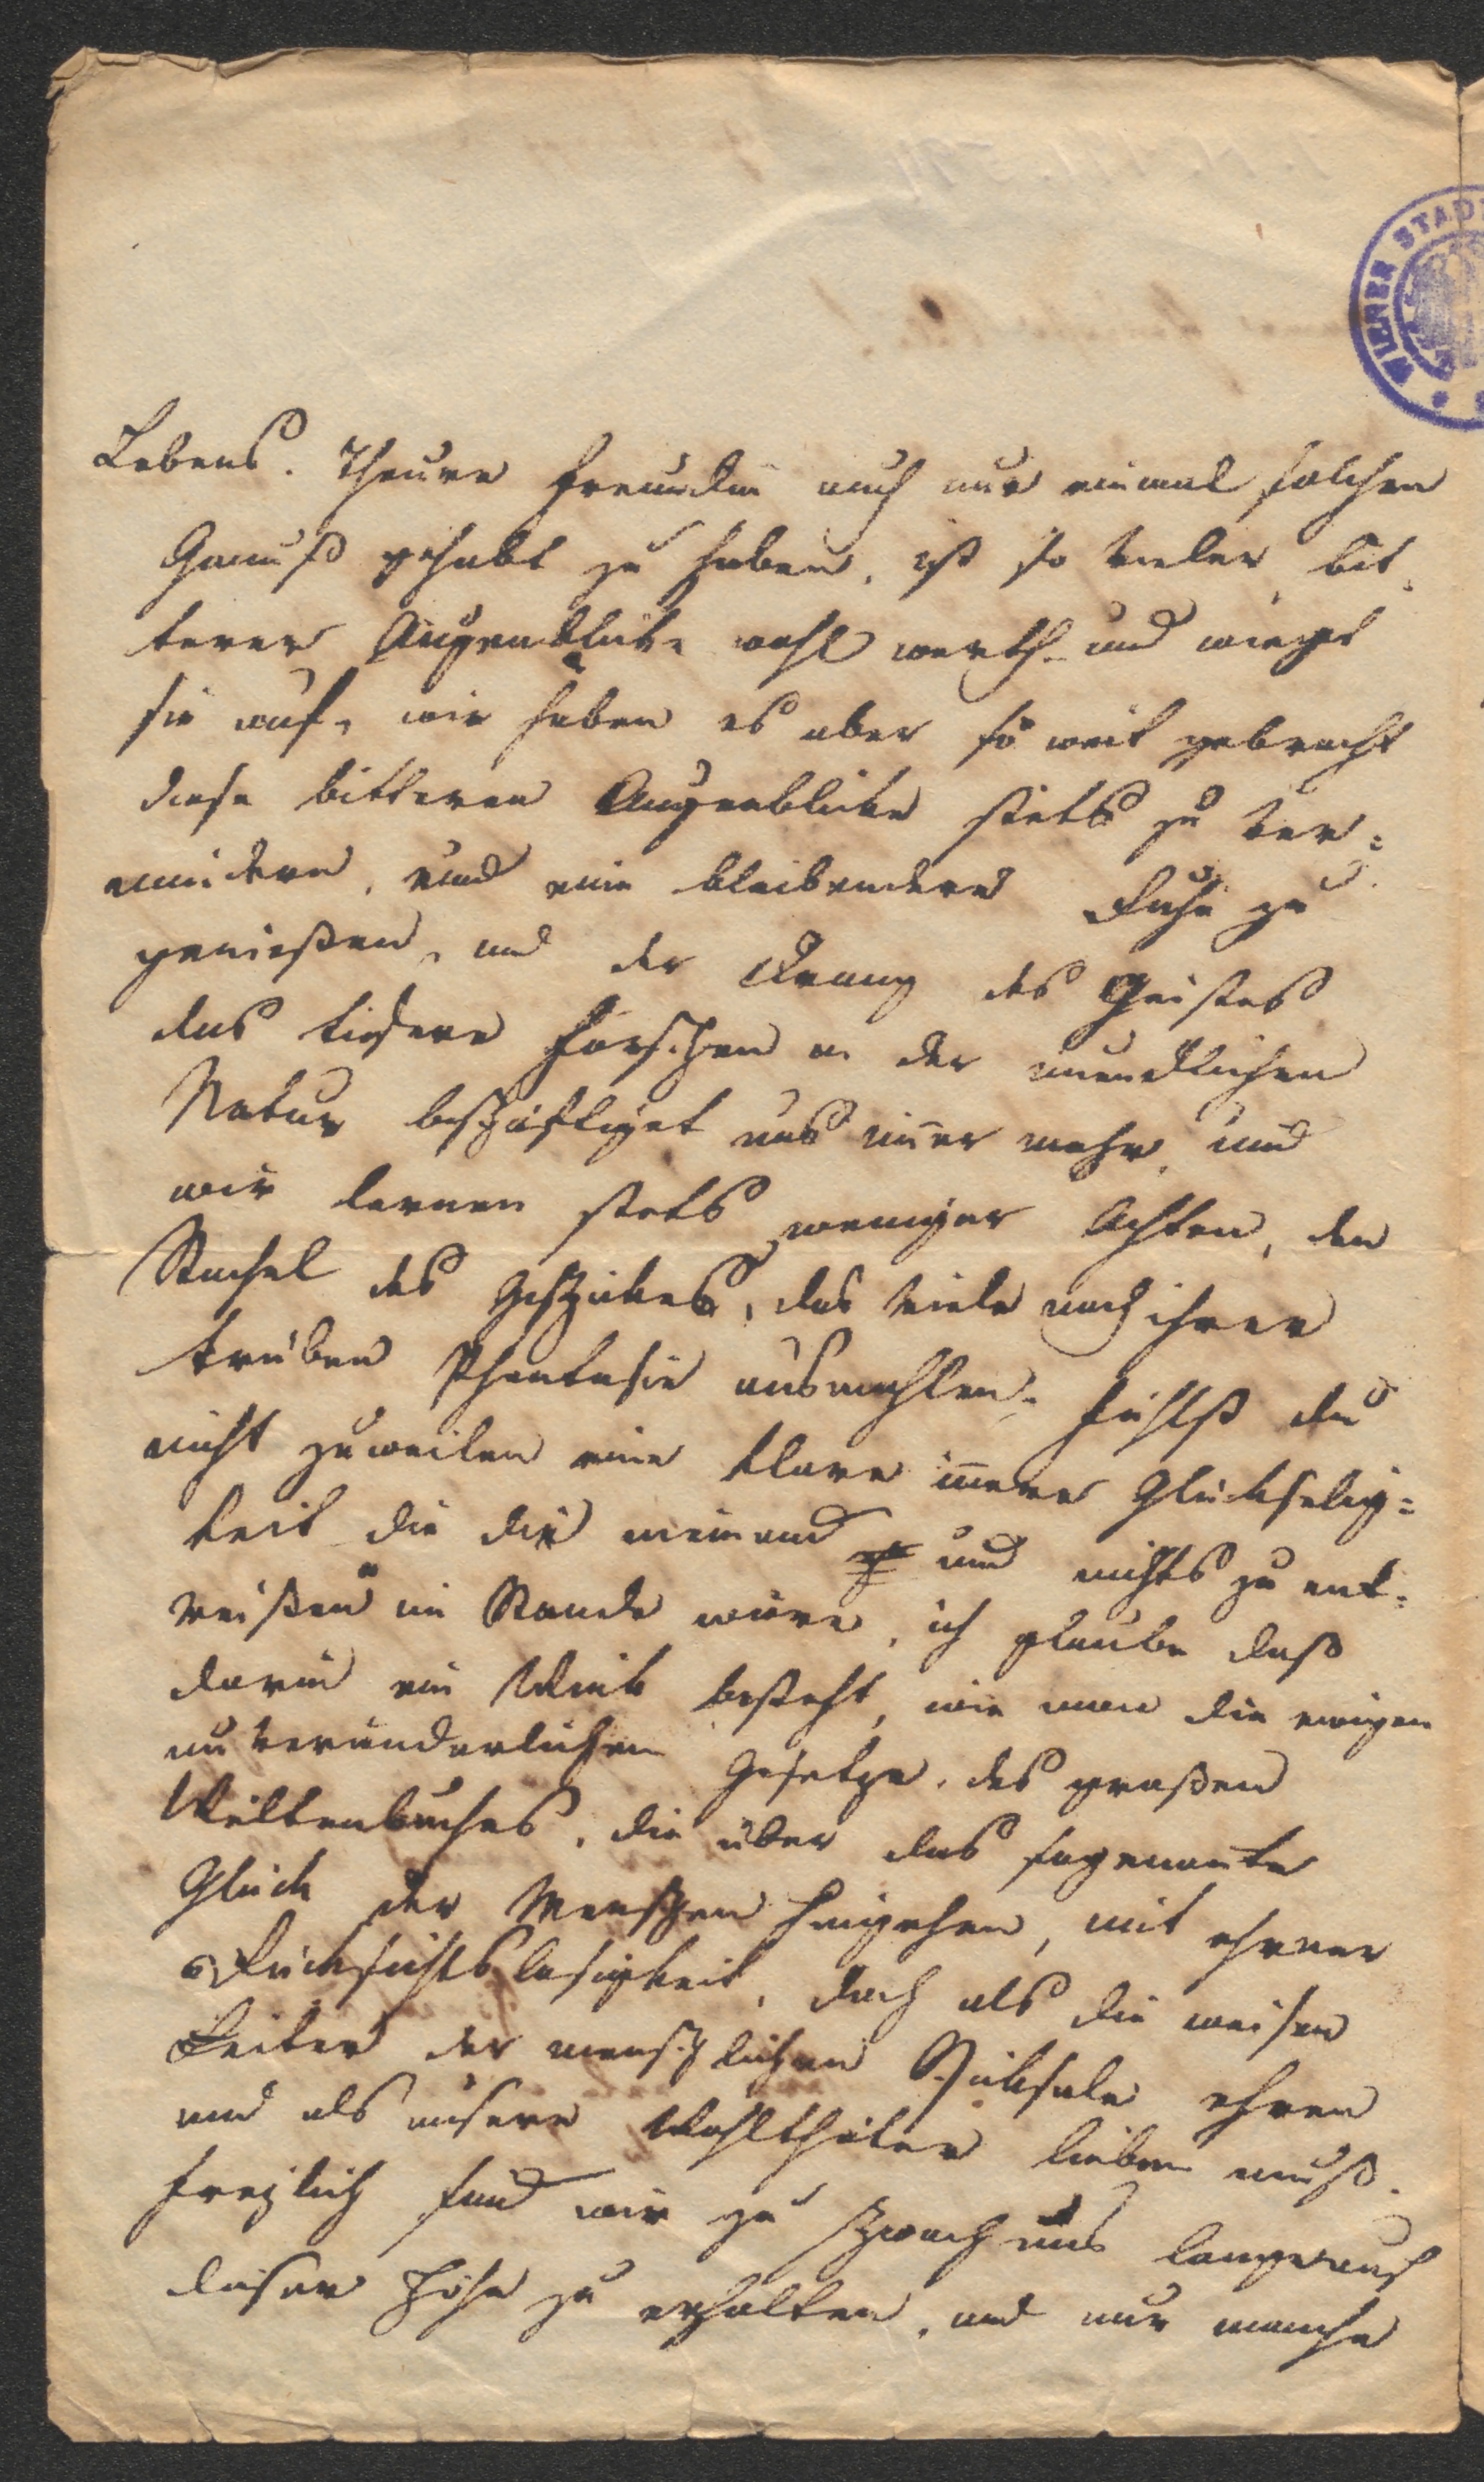 WIENER STAD
Lebens. Theure Freundin auch nur einmal solchen
Genuß gehabt zu haben, ist so vieler bit
terer Augenblicke wohl werth und wiegt
sie auf, wir haben es aber so weit gebracht
diese bitteren Augenblicke stets zu ver=
mindern, und eine bleibendere Ruhe zu
genießen, und der Drang des Geistes
das tiefere Forschen in der unendlichen
Natur beschäftiget uns imer mehr, und
wir lernen stets weniger Achten, den
Stachel des Geschickes, das viele nach ihrer
trüben Phantasie ausmahlen. Fühlst du
nicht zuweilen eine klare inere Glückselig=
keit die dir niemand und nichts zu ent=
reißen im Stande wäre, ich glaube daß
darin ein Wink besteht, wie man die ewigen
unveränderlichen Gesetze, des großen
Weltenbuches, die über das sogenante
Glück der Menschen hingehen, mit eherner
Rücksichtslosigkeit, doch als die weisen
Leiter der menschlichen Schicksale ehren
und als unsere Wohlthäter lieben muß.
Freylich sind wir zu schwach uns lange auf
dieser Höhe zu erhalten, und nur manche